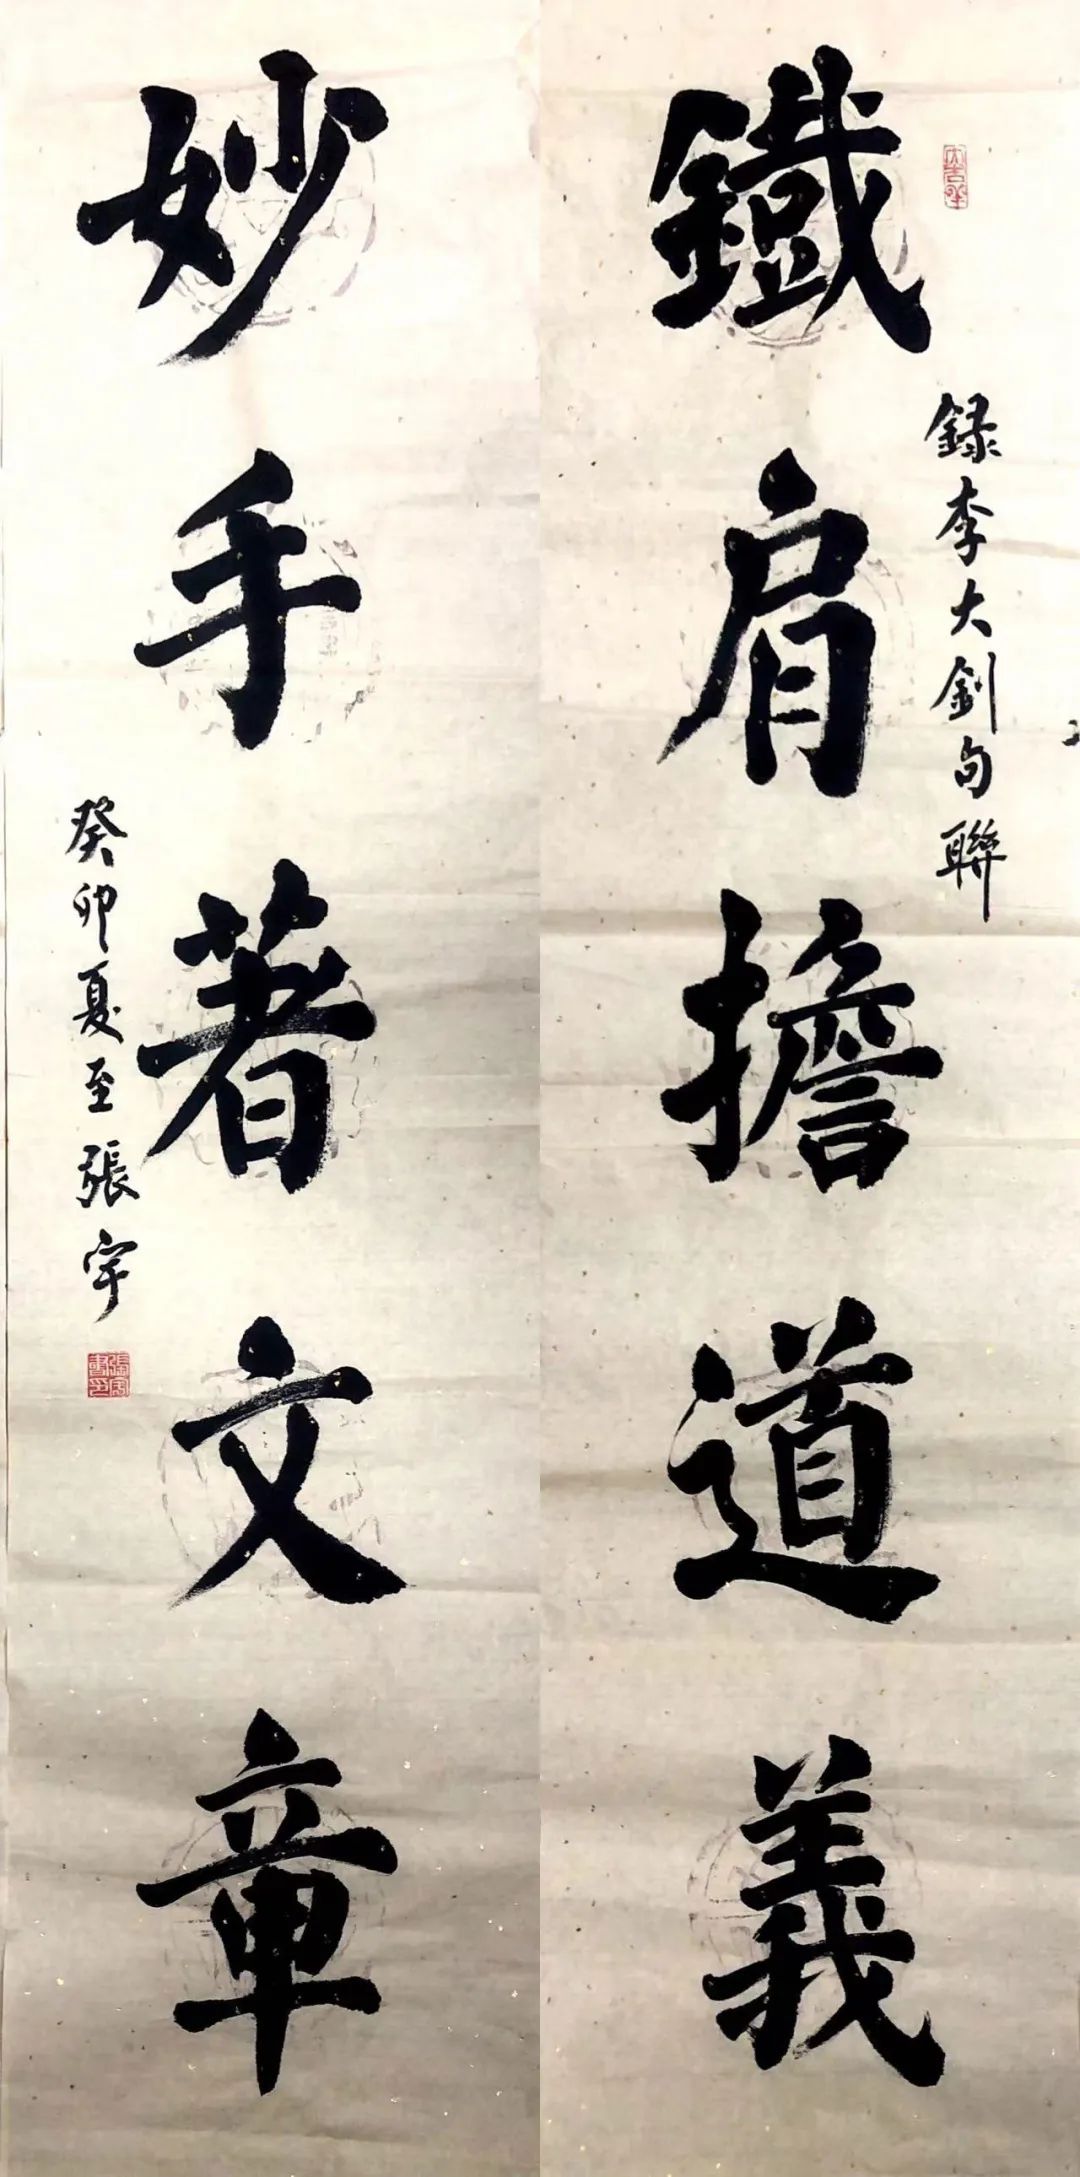 鐵肩擔道義
録李大釗句聯
妙手著文章
癸卯夏至張宇